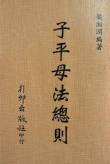 梁湘潤編著
子平母法總則
行卯出版社印行